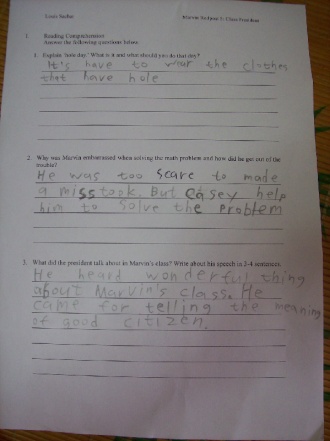 Louis Sachar
Marvin Redpost 5: Class President
1. Reading Comprehension
Answer the following questions below.
1. Explain 'hole day.' What is it and what should you do that day?
It's have to wear the clothes
that have hole
2. Why was Marvin embarrassed when solving the math problem and how did he get out of the
trouble?
He was too scare to made
a misstook. But Casey help
him to solve the problem
3. What did the president talk about in Marvin's class? Write about his speech in 3-4 sentences.
He heard wonderful thing
about Marvin's class. He
came for telling the meaning
of good citizen.